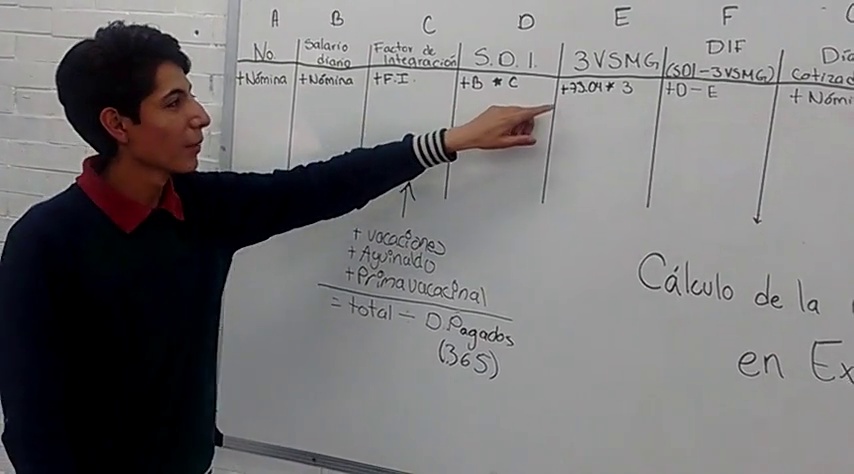 A B C D E F
No. Salario diario Factor de Integración S.D.I. 3VSMG DIF (SDI-3VSMG)
+Nómina +Nómina +F.I. +B * C +73.04* 3 +D-E
+ vacaciones
+ Aguinaldo
+Prima vacacinal
= total ÷ D.Pagados
(365)
Cálculo de la
en